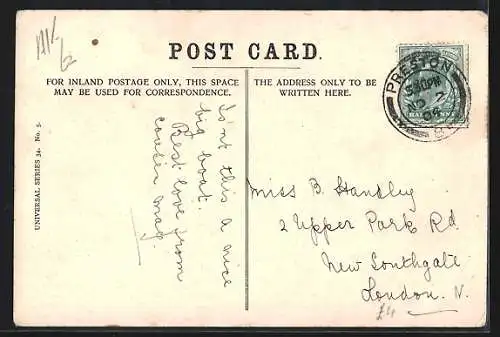 POST CARD.
FOR INLAND POSTAGE ONLY, THIS SPACE
MAY BE USED FOR CORRESPONDENCE.
THE ADDRESS ONLY TO BE
WRITTEN HERE.
UNIVERSAL SERIES 34. No. 5.
Is'nt this a nice
big boat.
Best love from
cousin may.
PRESTON
5.30PM
NO 7
04
HALF PENNY
Miss B. Standley
2 Upper Park Rd
New Southgate
London. N.
£4